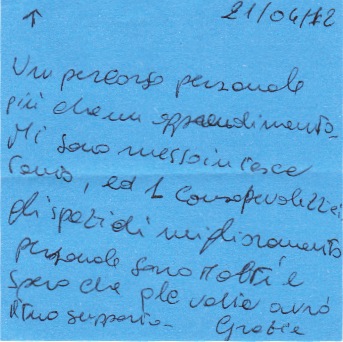 ↑ 21/04/12
Un percorso personale
più che un apprendimento.
Mi sono messo in
, ed 1 Consapevolezza:
gli spazi di miglioramento
personale sono molti e
spero che avrò
il tuo supporto - Grazie